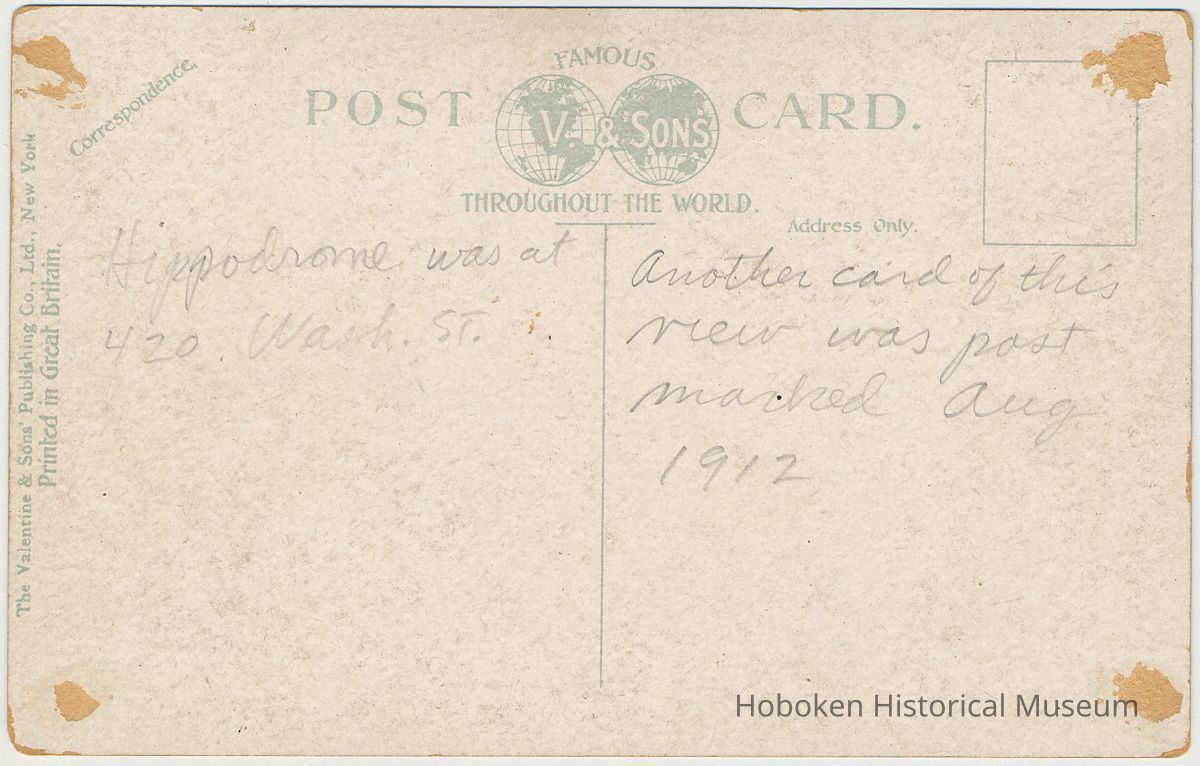 FAMOUS
POST V. & SONS CARD.
THROUGHOUT THE WORLD.
Correspondence.
Address Only.
The Valentine & Sons' Publishing Co., Ltd., New York
Printed in Great Britain.
Hippodrome was at
420 Wash. ST.
Another card of this
view was post
marked Aug
1912
Hoboken Historical Museum